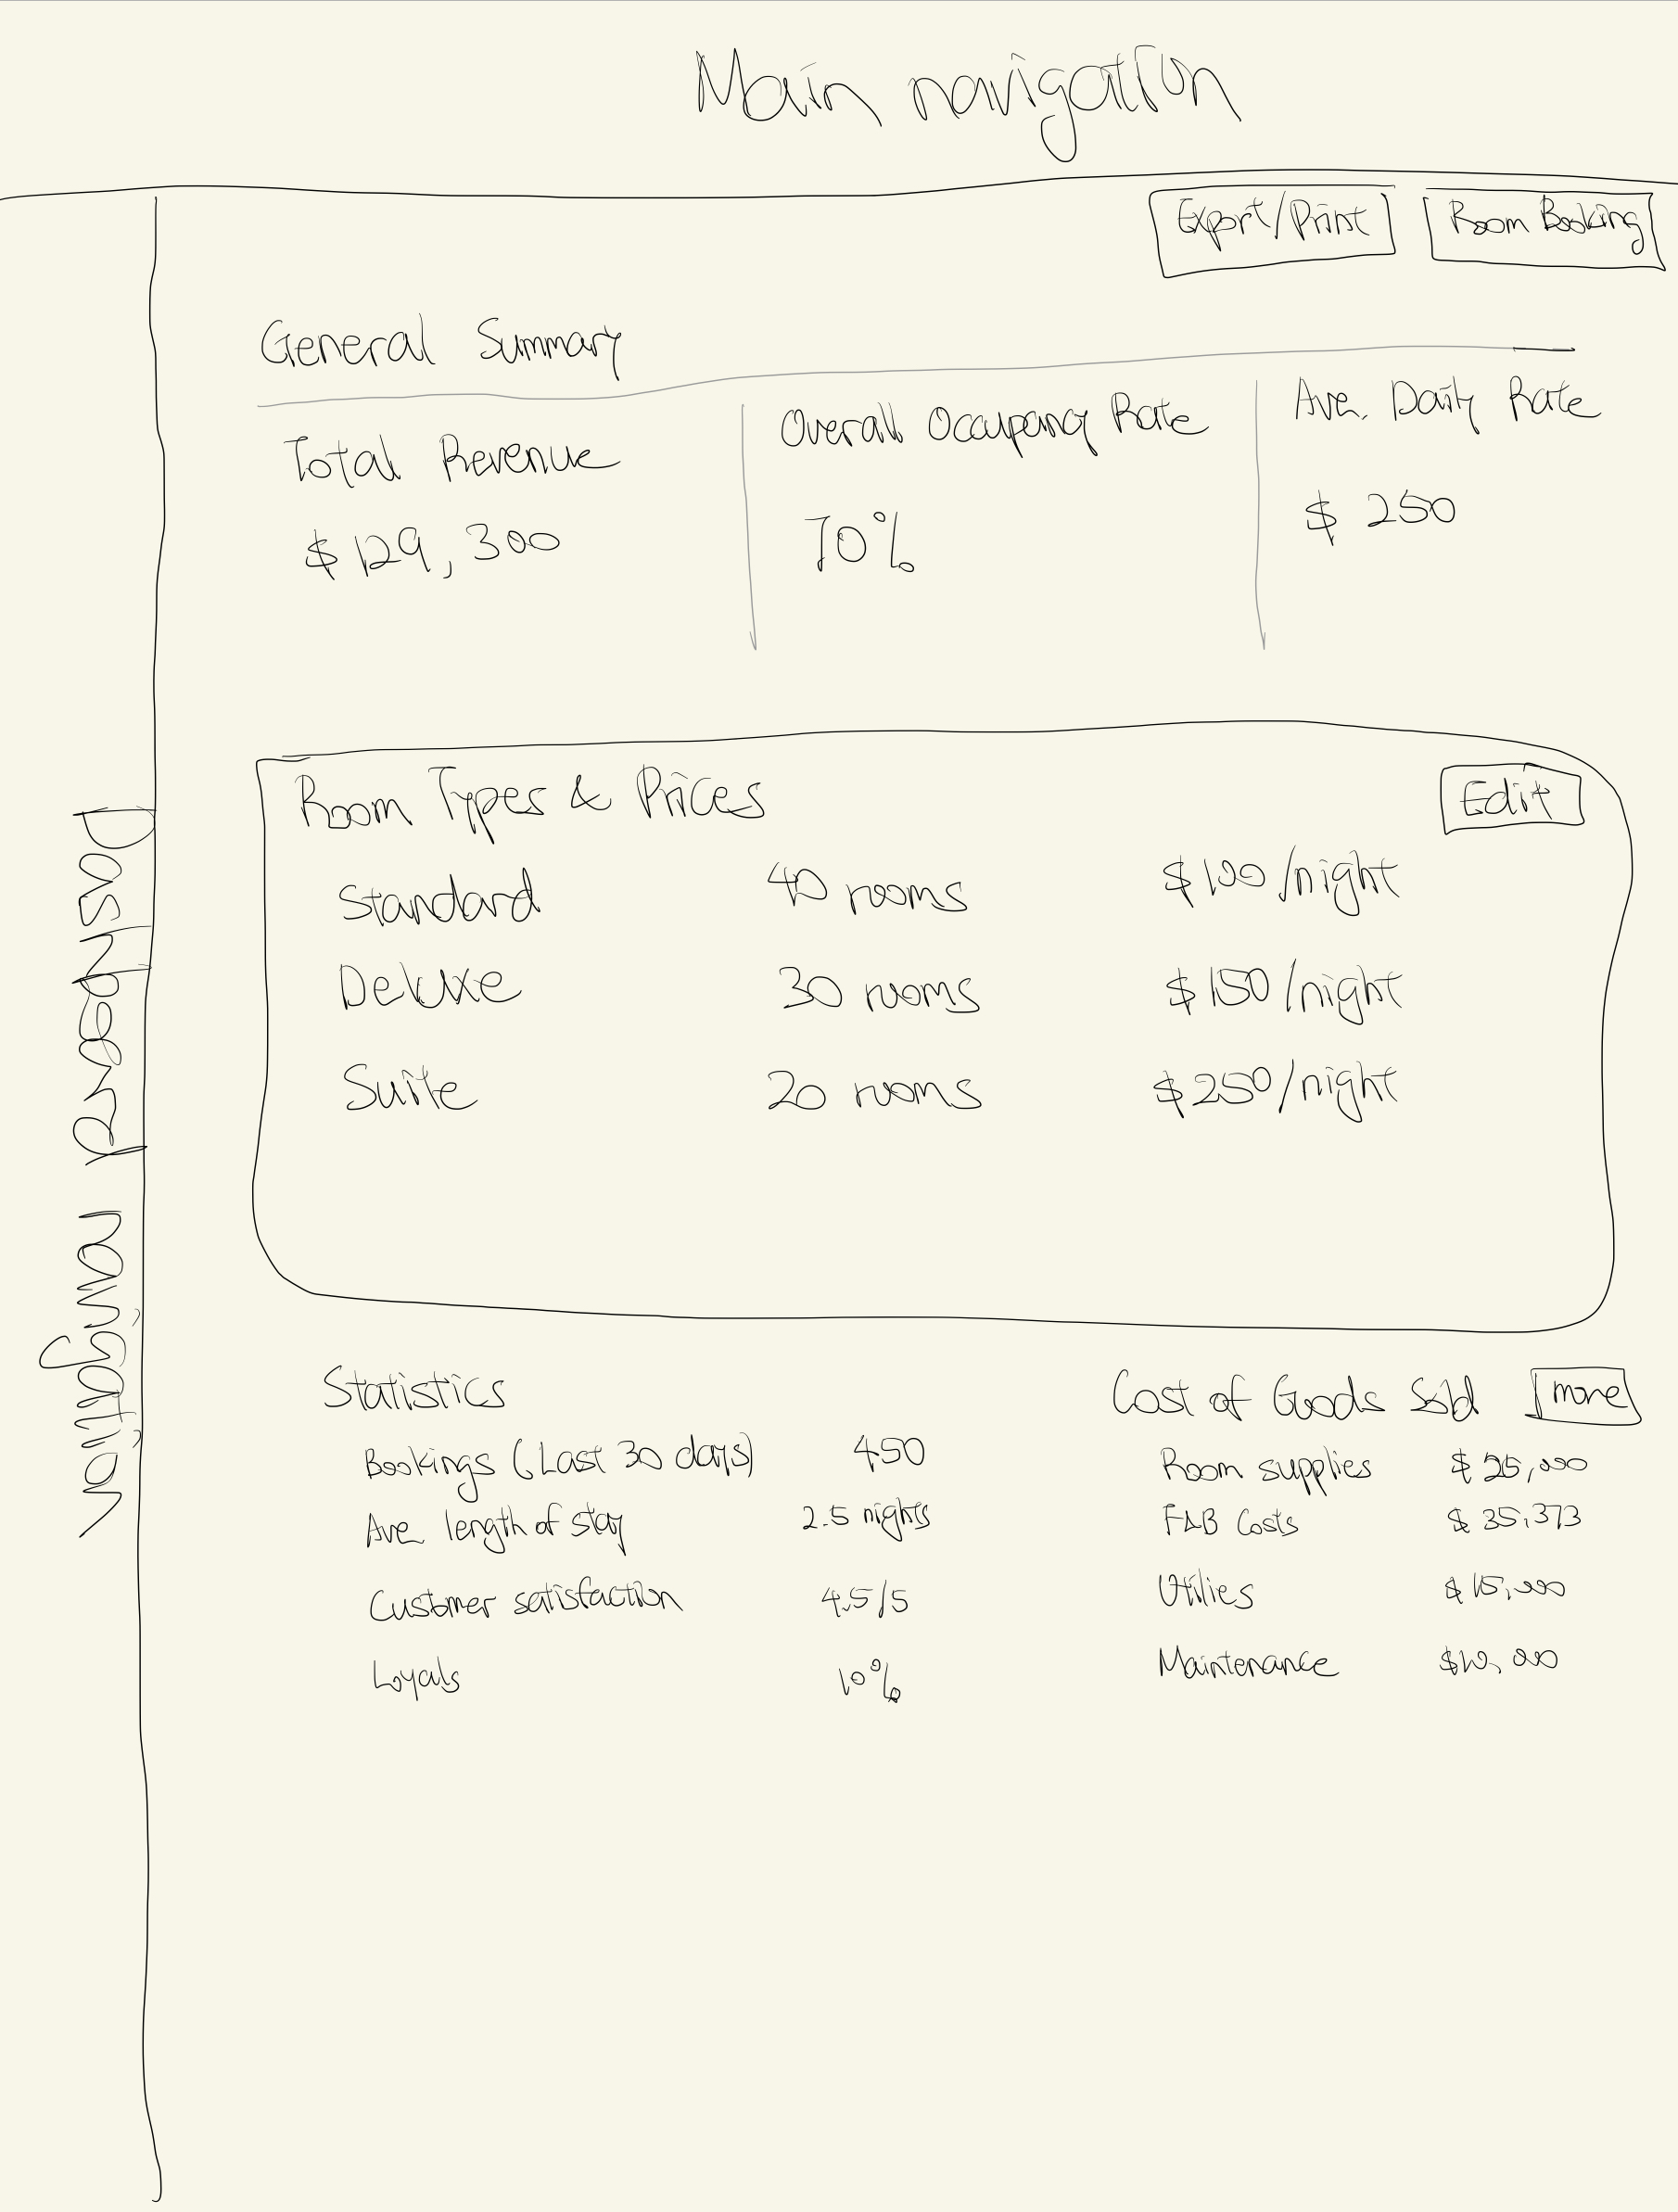 Main navigation
Export/Print
Room Booking
General Summary
Total Revenue
$129,300
Overall Occupancy Rate
70%
Ave. Daily Rate
$ 250
Dashboard navigation
Room Types & Prices
Edit
Standard 40 rooms $100/night
Deluxe 30 rooms $150/night
Suite 20 rooms $250/night
Statistics
Bookings (Last 30 days) 450
Ave. length of stay 2.5 nights
Customer satisfaction 4.5/5
Loyals 10%
Cost of Goods Sold
more
Room supplies $ 25,000
F&B Costs $ 35,373
Utilies $ 15,000
Maintenance $10,000